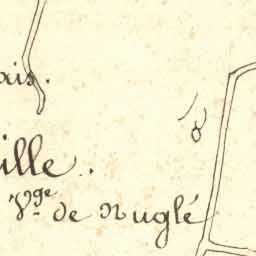 ais.
ille.
Vge de Nuglé